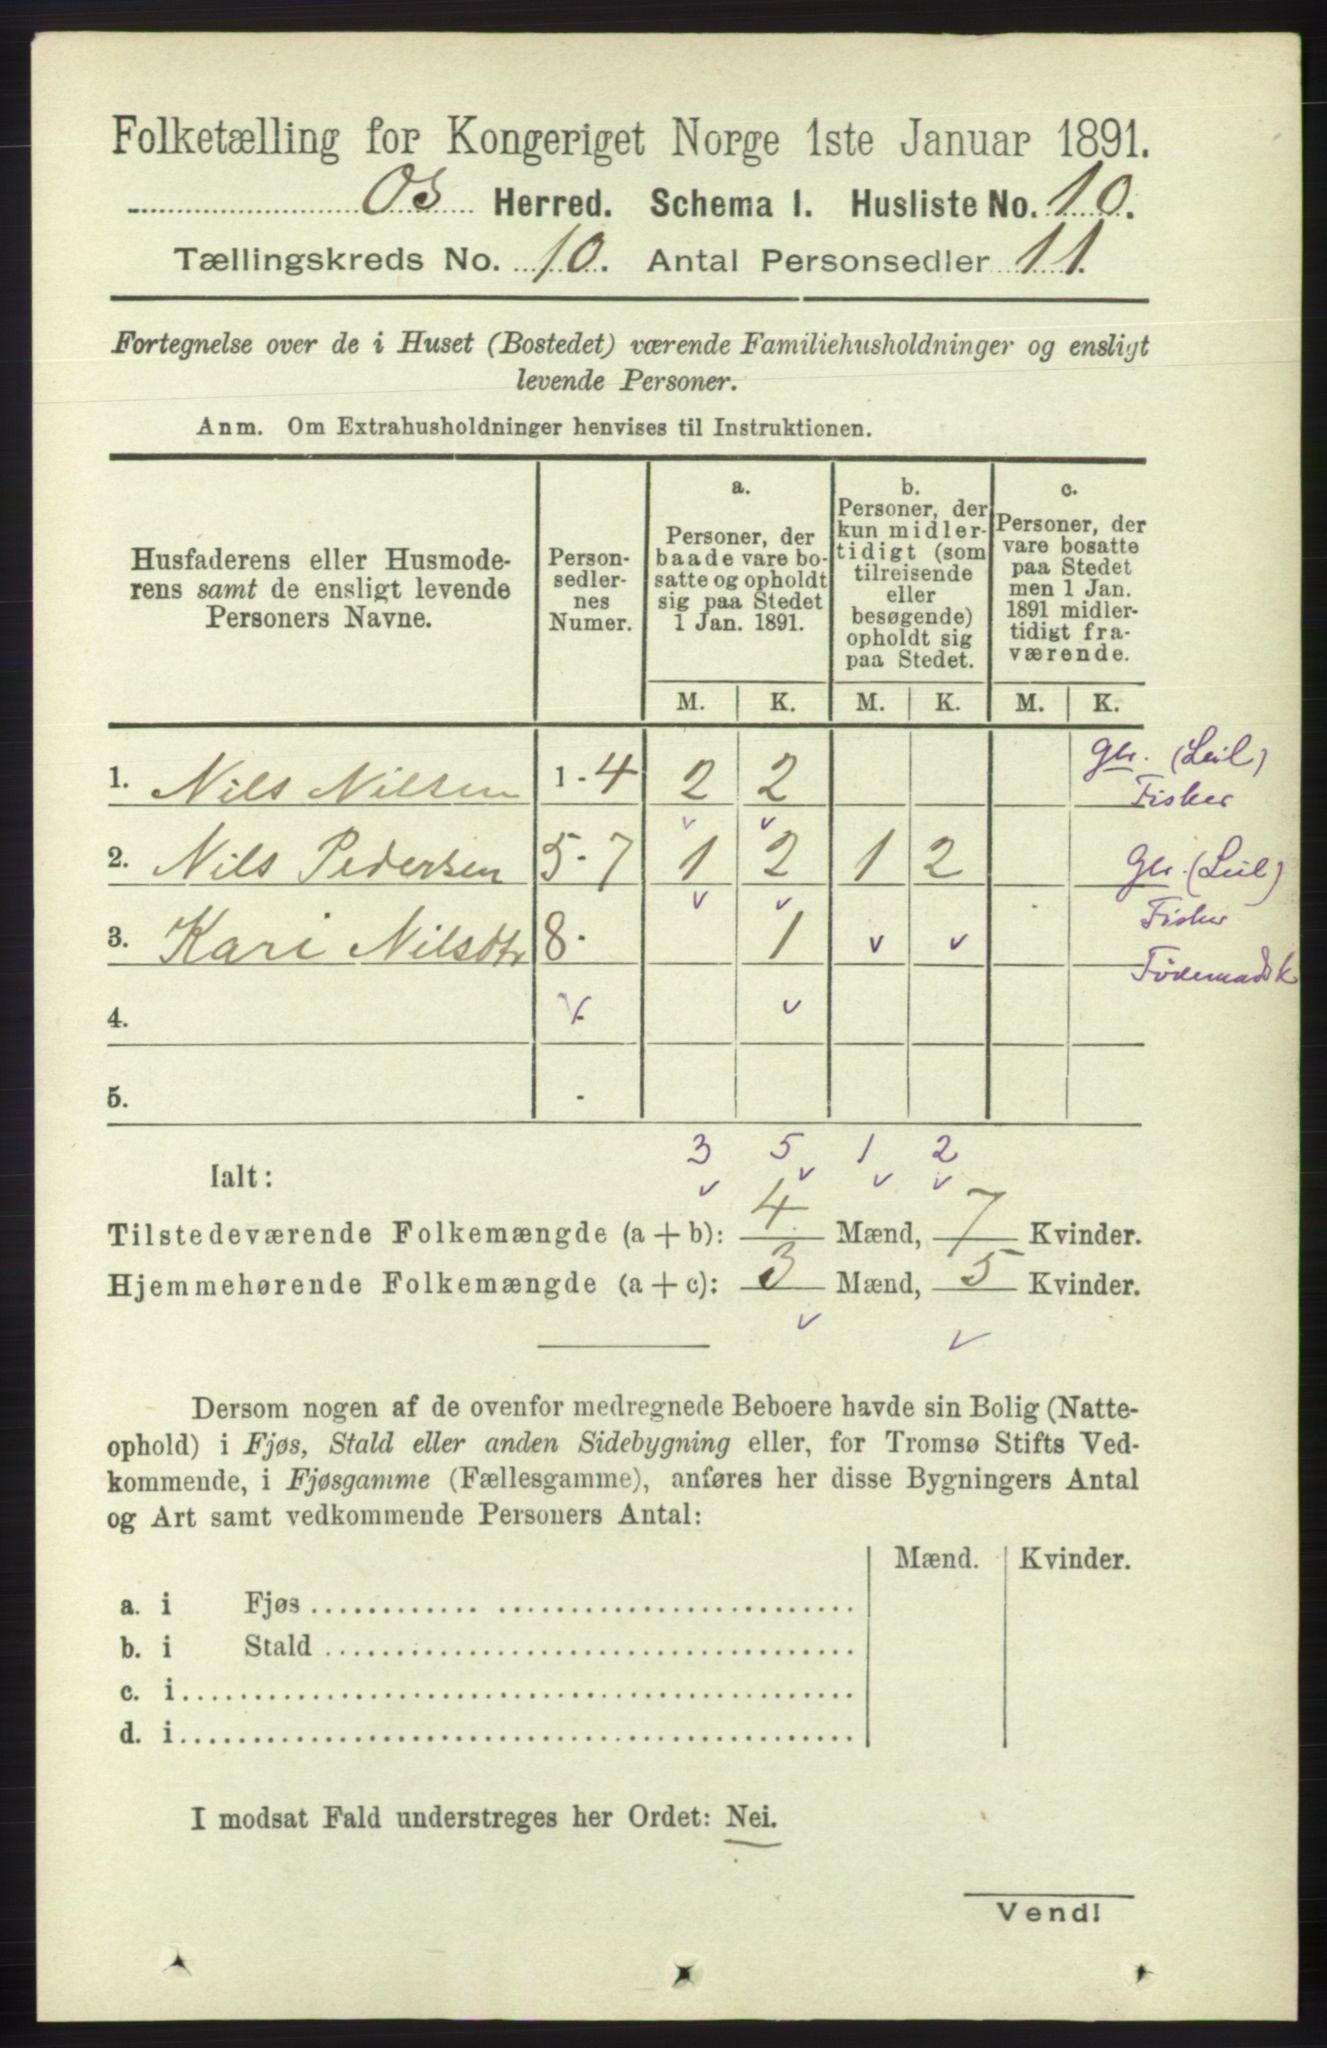 Folketælling for Kongeriget Norge 1ste Januar 1891.
Os Herred. Schema 1. Husliste No. 10.
Tællingskreds No. 10. Antal Personsedler 11.
Fortegnelse over de i Huset (Bostedet) værende Familiehusholdninger og ensligt
levende Personer.
Anm. Om Extrahusholdninger henvises til Instruktionen.
Husfaderens eller Husmode-
rens samt de ensligt levende
Personers Navne.
Person-
sedler-
nes
Numer.
a.
Personer, der
baade vare bo-
satte og opholdt
sig paa Stedet
1 Jan. 1891.
b.
Personer, der
kun midler-
tidigt (som
tilreisende
eller
besøgende)
opholdt sig
paa Stedet.
c.
Personer, der
vare bosatte
paa Stedet
men 1 Jan.
1891 midler-
tidigt fra-
værende.
M. K. M. K. M. K.
1. Nils Nilsen 1-4 2 2 Gbr. (Leil)
Fisker
2. Nils Pedersen 5-7 1 2 1 2 Gbr. (Leil)
Fisker
3. Kari Nilsdtr 8- 1
Föderaadsk
4.
5. -
3 5 1 2
Ialt:
Tilstedeværende Folkemængde (a+b): 4 Mænd, 7 Kvinder.
Hjemmehørende Folkemængde (a+c): 3 Mænd, 5 Kvinder.
Dersom nogen af de ovenfor medregnede Beboere havde sin Bolig (Natte-
ophold) i Fjøs, Stald eller anden Sidebygning eller, for Tromsø Stifts Ved-
kommende, i Fjøsgamme (Fællesgamme), anføres her disse Bygningers Antal
og Art samt vedkommende Personers Antal:
Mænd. Kvinder.
a. i Fjøs
b. i Stald
c. i
d. i
I modsat Fald understreges her Ordet: Nei.
Vend!